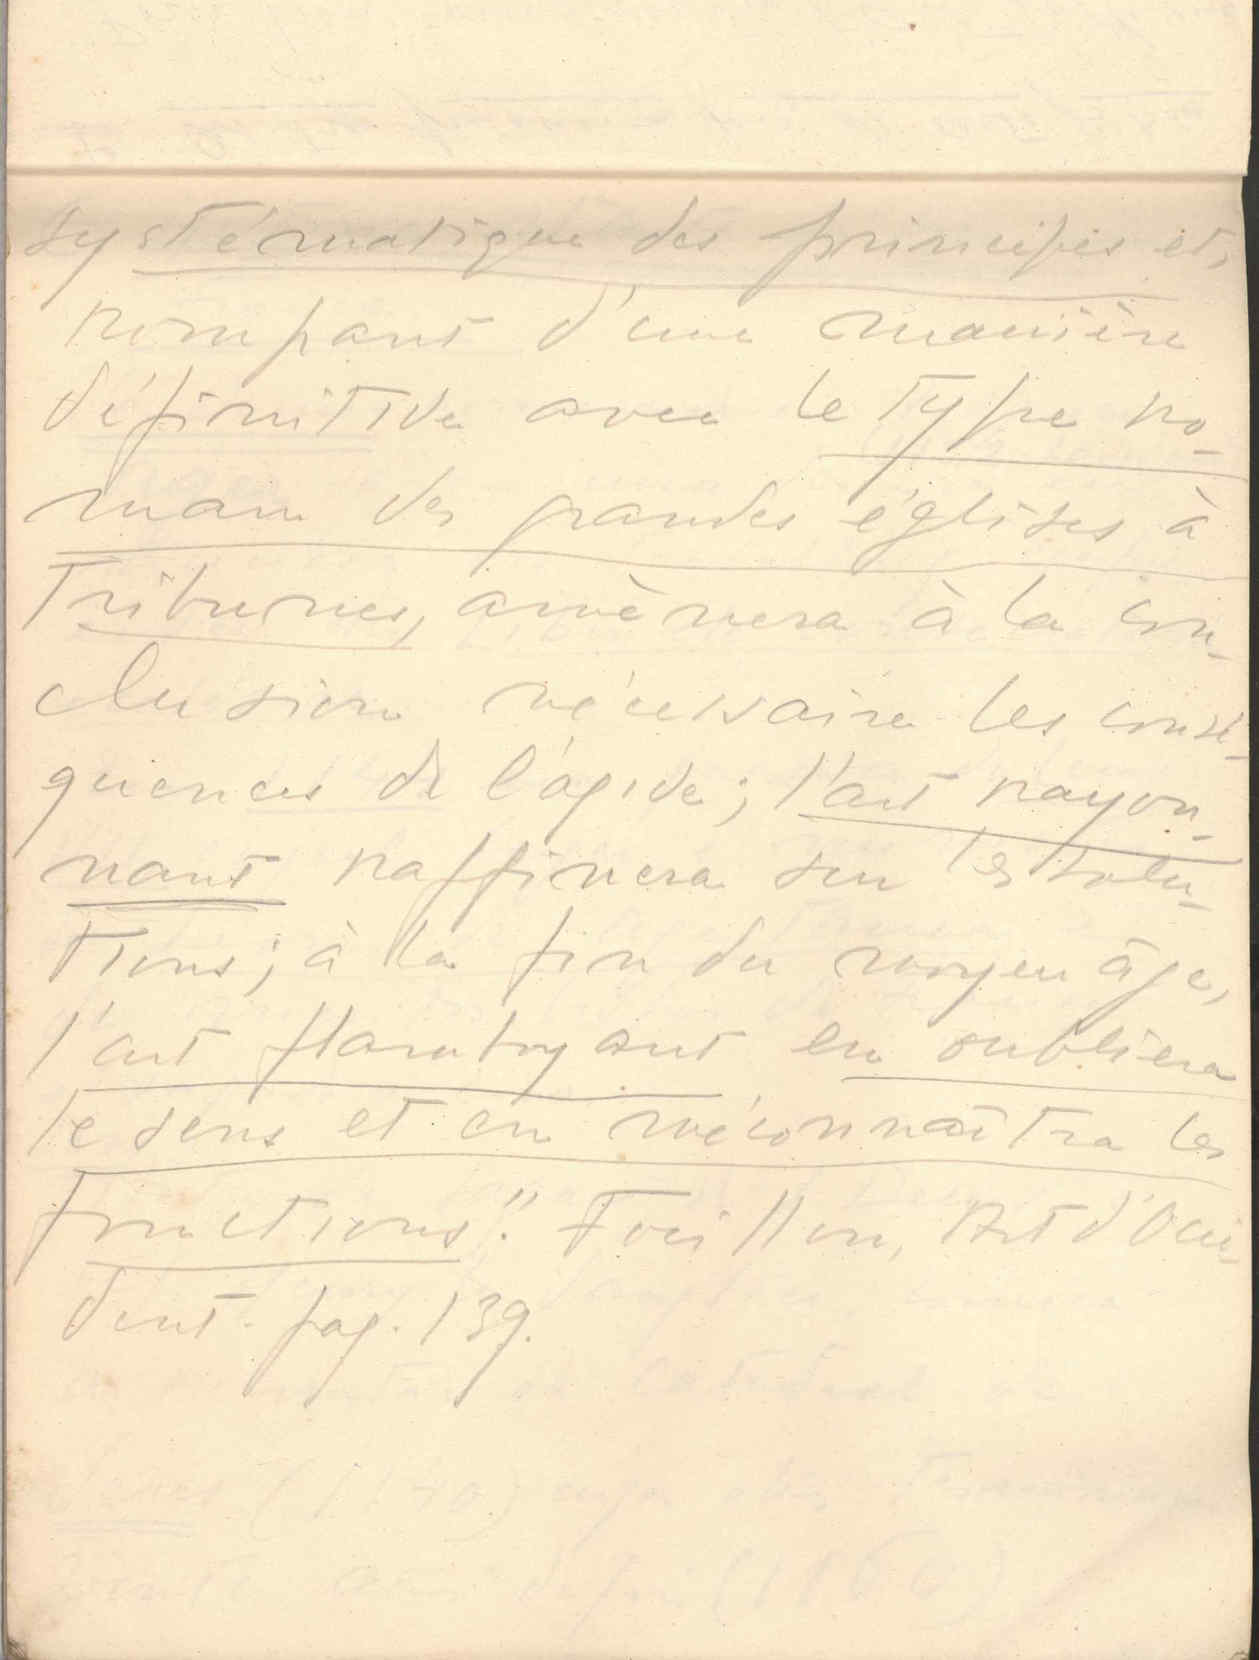 systématique des principes et,
rompant d'une manière
définitive avec le type ro-
man des grandes églises à
tribunes, amènera à la con-
clusion nécessaire les consé-
quences de l'ogive; l'art rayon-
nant raffinera sur les solu-
tions; à la fin du moyen âge,
l'art flamboyant en oubliera
le sens et en méconnaîtra les
fonctions". Focillon, Art d'Occi-
dent. pag. 139.